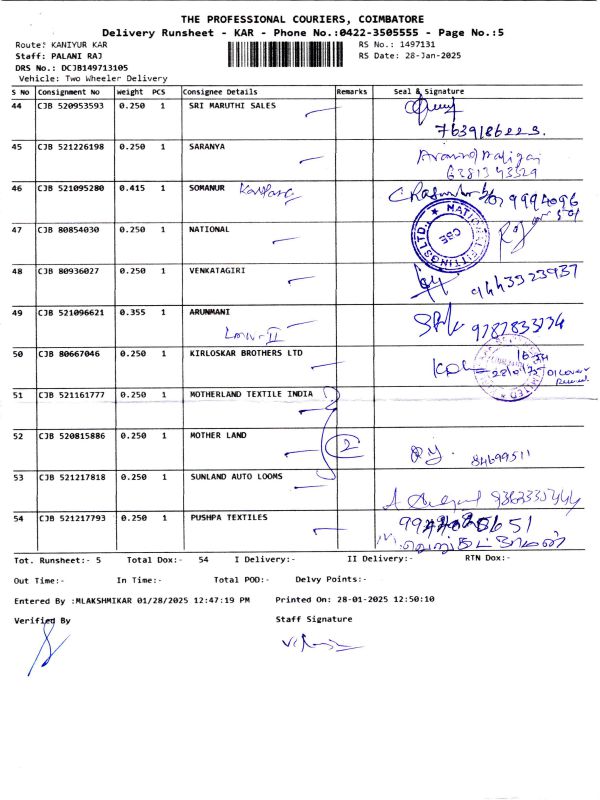 THE PROFESSIONAL COURIERS, COIMBATORE
Delivery Runsheet - KAR - Phone No.:0422-3505555 - Page No.:5
Route: KANIYUR KAR RS No.: 1497131
Staff: PALANI RAJ RS Date: 28-Jan-2025
DRS No.: DCJB149713105
Vehicle: Two Wheeler Delivery
S No Consignment No Weight PCS Consignee Details Remarks Seal & Signature
44 CJB 520953593 0.250 1 SRI MARUTHI SALES
7639186223.
45 CJB 521226198 0.250 1 SARANYA
6281343329
46 CJB 521095280 0.415 1 SOMANUR
47 CJB 80854030 0.250 1 NATIONAL
48 CJB 80936027 0.250 1 VENKATAGIRI
9443323937
49 CJB 521096621 0.355 1 ARUNMANI
9787833734
50 CJB 80667046 0.250 1 KIRLOSKAR BROTHERS LTD
51 CJB 521161777 0.250 1 MOTHERLAND TEXTILE INDIA
52 CJB 520815886 0.250 1 MOTHER LAND 2
84699511
53 CJB 521217818 0.250 1 SUNLAND AUTO LOOMS
54 CJB 521217793 0.250 1 PUSHPA TEXTILES
Tot. Runsheet:- 5 Total Dox:- 54 I Delivery:- II Delivery:- RTN Dox:-
Out Time:- In Time:- Total POD:- Delvy Points:-
Entered By :MLAKSHMIKAR 01/28/2025 12:47:19 PM Printed On: 28-01-2025 12:50:10
Verified By Staff Signature